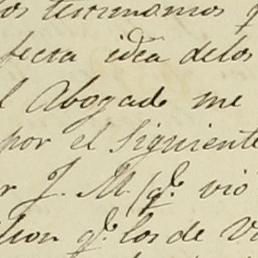 os terminamos q
fecta idea delos
l Abogado me
por el Siguiente
r J. M. (q.e vio
q.e los de V